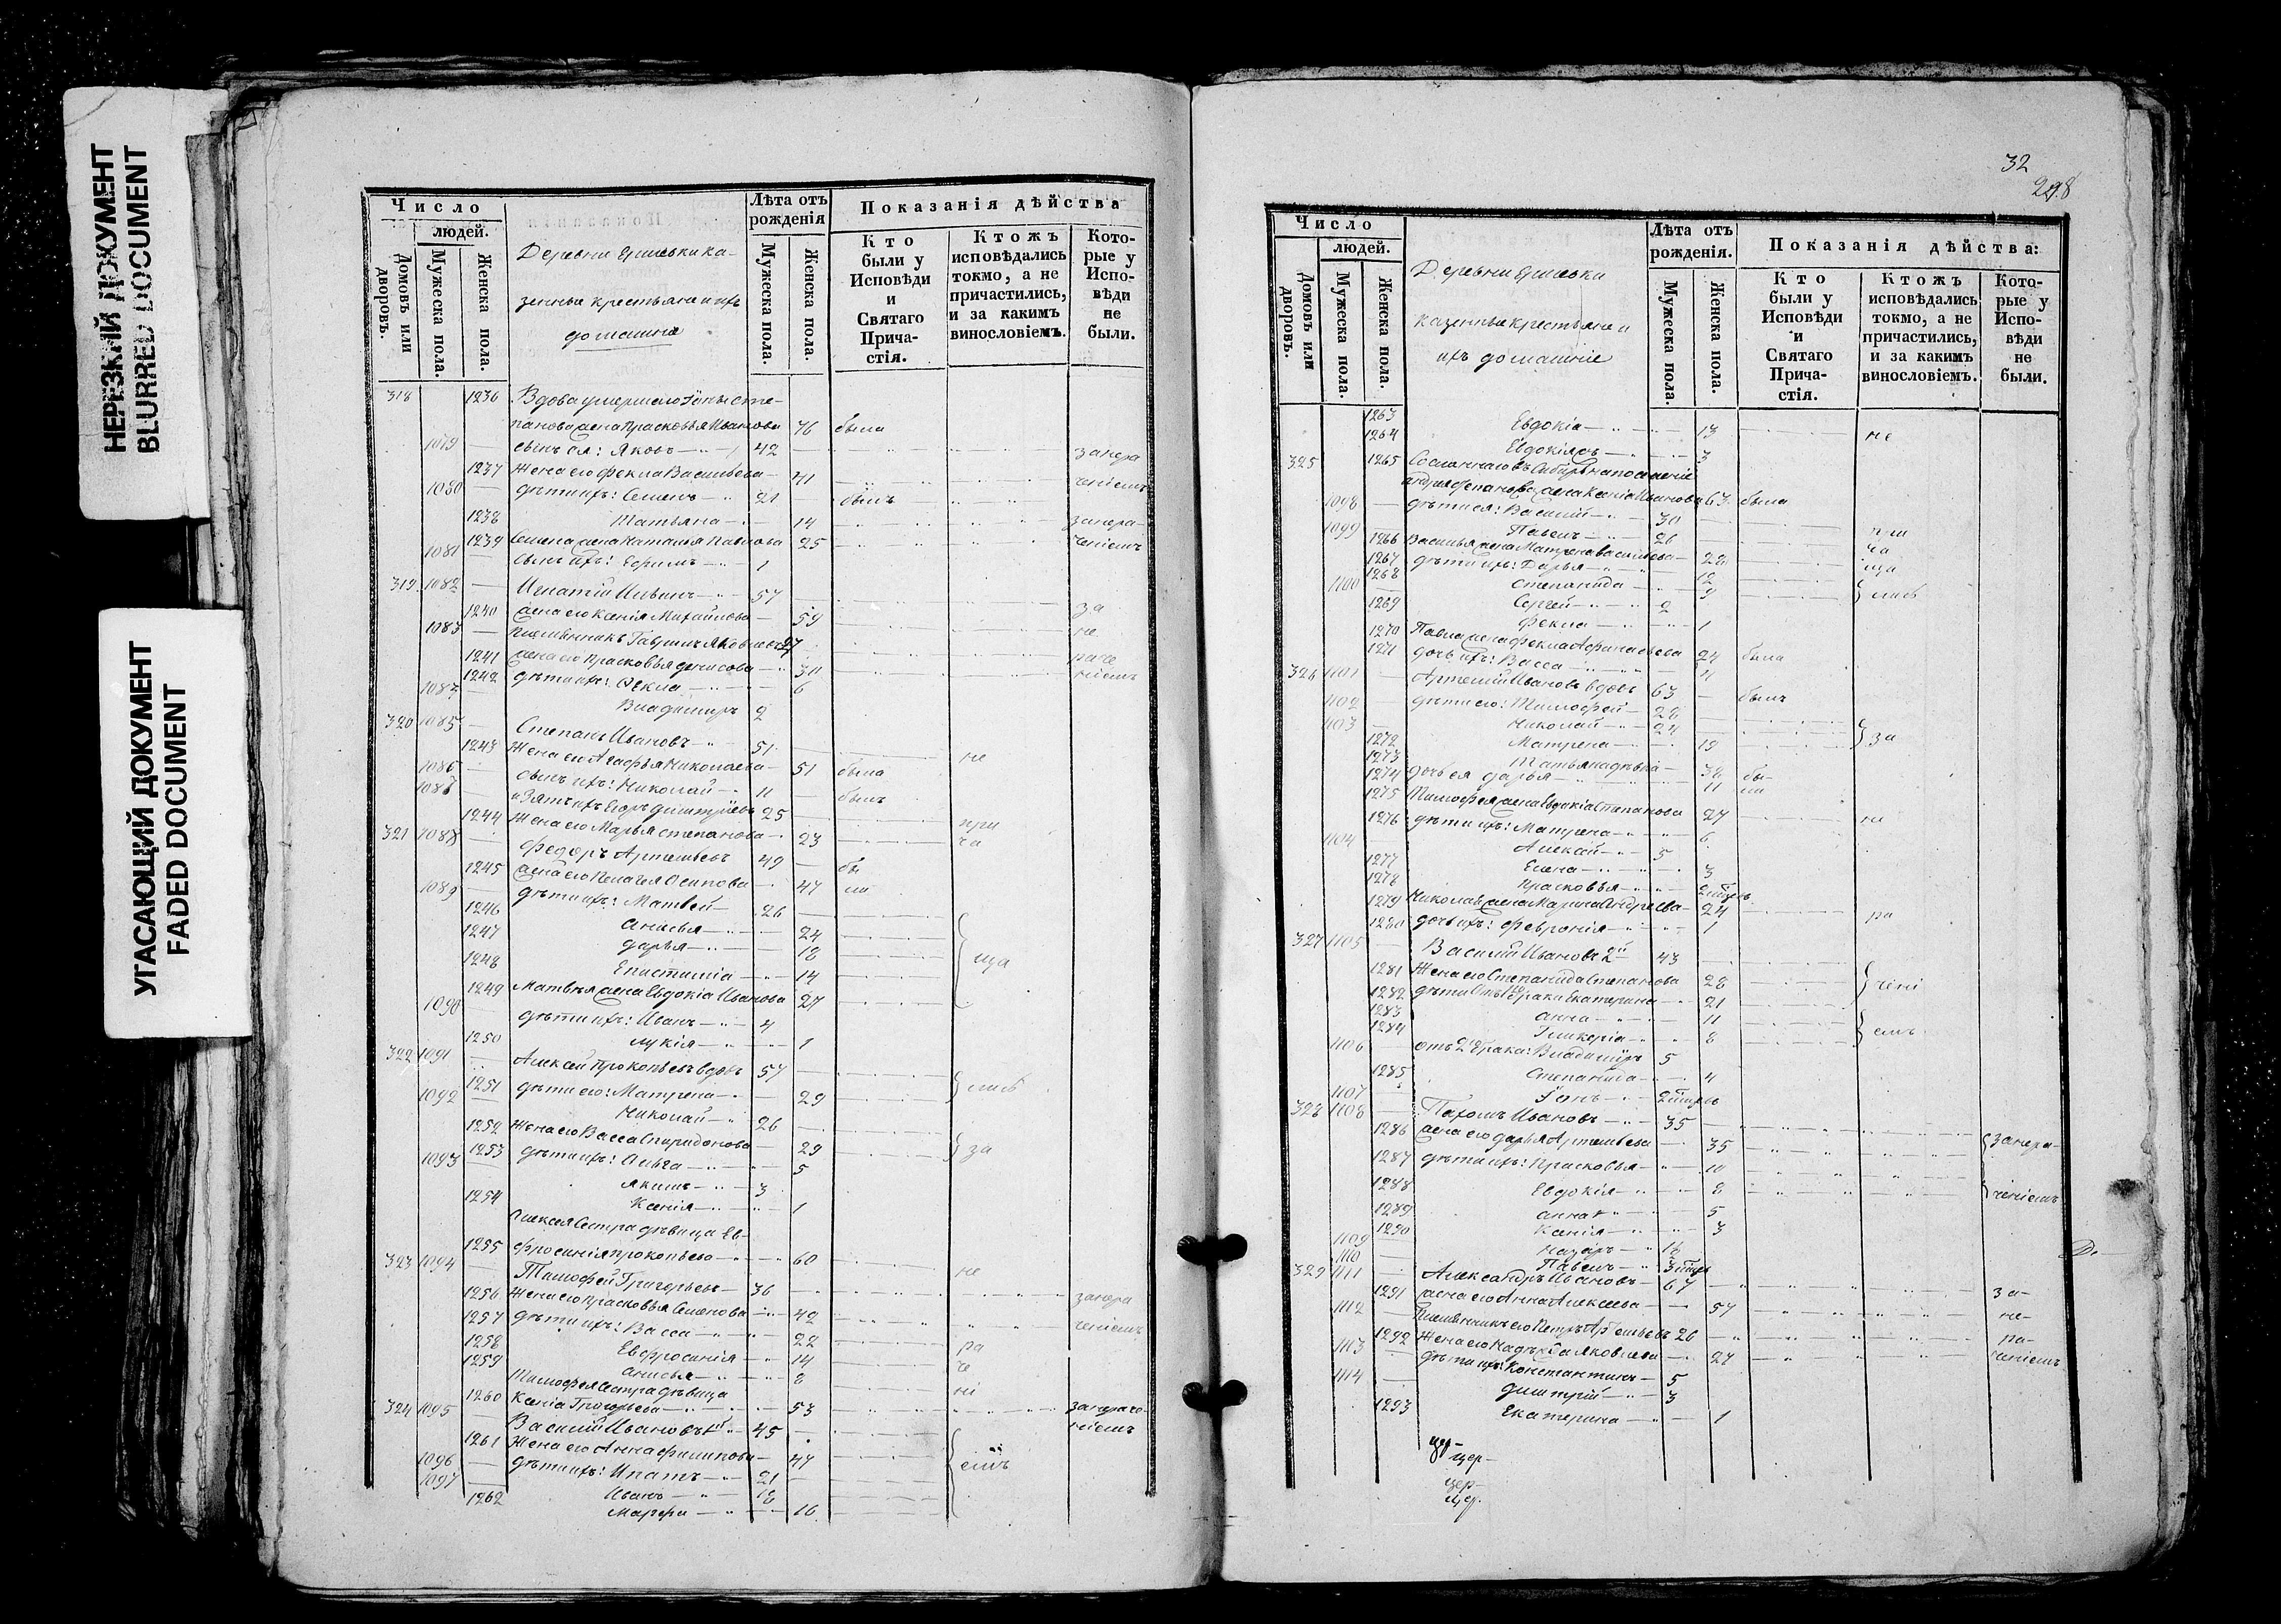 НЕРЕЗКИЙ ДОКУМЕНТ
BLURRED DOCUMENT
УГАСАЮЩИЙ ДОКУМЕНТ
FADED DOCUMENT
Число
людей.
Домовъ или дворовъ.
Мужеска пола.
Женска пола.
Деревни казенные крестьяне и ихъ домашніе
Лѣта отъ рожденія
Мужеска пола.
Женска пола.
Показанія дѣйства
Кто были у Исповѣди и Святаго Причастія.
Ктожъ исповѣдались токмо, а не причастились, и за какимъ винословіемъ.
Которые у Исповѣди не были.
318 1236 Вдова умершаго Іоны Сте-
панова жена Прасковья Иванова 76 была
1079 сынъ ея: Яковъ 42 занера
1237 Жена его Фекла Васильева 41 ченіемъ
1080 дѣти ихъ: Семенъ 21 былъ
1238 Татьяна 14 занера-
1239 Семена жена Наталья Павлова 25 ченіемъ
1081 сынъ ихъ: Ефимъ 1
319 1082 Игнатій Ильинъ 57
1240 жена его Ксенія Михайлова 59 за
1083 племянникъ Гаврилъ Яковлевъ 27 не
1241 жена его Прасковья Денисова 30 раче
1242 дѣти ихъ: Фекла 6 ніемъ
1084 Владимиръ 2
320 1085 Степанъ Ивановъ 51
1243 Жена его Агафья Николаева 51 была не
1086 сынъ ихъ: Николай 11 былъ
1087 и Зять ихъ Егоръ Димитріевъ 25
1244 Жена его Марья Степанова 23 при
321 1088 Федоръ Артемьевъ 49 бы ча
1245 жена его Пелагея Осипова 47 ли
1089 дѣти ихъ: Матвей 26
1246 Анисья 24
1247 Дарья 18 ща
1248 Епистимія 14
1249 Матвѣя жена Евдокія Иванова 24
1090 дѣти ихъ: Иванъ 4
1250 Лукія 1
322 1091 Алексей Прокопьевъ вдовъ 57
1251 дѣти его: Матрена 29 лись
1092 Николай 26
1252 Жена его Васса Спиридонова 29 за
1253 дѣти ихъ: Ольга 5
1093 Якимъ 3
1254 Ксенія 1
Алексея сестра дѣвица Ев-
1255 фросинія Прокопьева 60
323 1094 Тимофей Григорьевъ 36 не
1256 Жена его Прасковья Семенова 42 занера
1257 дѣти ихъ: Васса 22 ченіемъ
1258 Евфросинія 14 ра
1259 Анисья 8 че
Тимофея сестра дѣвица
1260 Ксенія Григорьева 53 ні занераче-
324 1095 Василій Ивановъ 1й 45 ніемъ
1261 Жена его Анна Филипова 47
1096 дѣти ихъ: Ипатъ 21 емъ
1097 Иванъ 18
1262 Марфа 16
32
298
Число
людей.
Домовъ или дворовъ.
Мужеска пола.
Женска пола.
Деревни казенные крестьяне и ихъ домашніе
Лѣта отъ рожденія.
Мужеска пола.
Женска пола.
Показанія дѣйства:
Кто были у Исповѣди и Святаго Причастія.
Ктожъ исповѣдались токмо, а не причастились, и за какимъ винословіемъ.
Которые у Исповѣди не были.
1263 Евдокія 13 не
1264 3
325 1265 Сосланнаго въ Сибирь на поселеніе
жена Ксенія Иванова 63 была
1098 дѣти ея: Василій 30
1099 Павелъ 26 при
1266 Василья жена Матрена Васильева 28 ча
1267 дѣти ихъ: Дарья 12 ща
1268 Степанида 9 лись
1100 Сергей 2
1269 Фекла 1
1270 Павла жена Фекла Афанасьева 24 была
1271 дочь ихъ: Васса 4
326 1101 Артемій Ивановъ вдовъ 63 былъ
1102 дѣти его: Тимофей 28
1103 Николай 24
1272 Матрена 19 за
1273 Татьяна дѣвка 38 бы-
1274 дочь ея Дарья 11 ли
1275 Тимофея жена Евдокія Степанова 27
1276 дѣти ихъ: Матрена 6 не
1104 Алексей 5
1277 Елена 3
1278 Прасковья
1279 Николая жена Марина Андреева 24
1280 дочь ихъ: Февронія 1 ра
327 1105 Василій Ивановъ 2й 43
1281 Жена его Степанида Степанова 28 чені
1282 дѣти отъ 1го брака Екатерина 21
1283 Анна 11 емъ
1284 Гликерія 8
1106 отъ 2го брака: Владиміръ 5
1285 Степанида 4
1107 Іонъ
328 1108 Пахомъ Ивановъ 35
1286 жена его Дарья Артемьева 35 занера-
1287 дѣти ихъ: Прасковья 10
1288 Евдокія 8 ченіемъ
1289 Анна 5
1290 Ксенія 3
1109 Назаръ
1110 Павелъ
329 1111 Александръ Ивановъ 67
1291 жена его Анна Алексеева 57 за-
1112 Племянникъ его Петръ Артемьевъ 26 не-
1292 Жена его Надежда Яковлева 27 ра-
1113 дѣти ихъ: Константинъ 5 ченіемъ
1114 Димитрій 3
1293 Екатерина 1
цер-
цер-
цер-